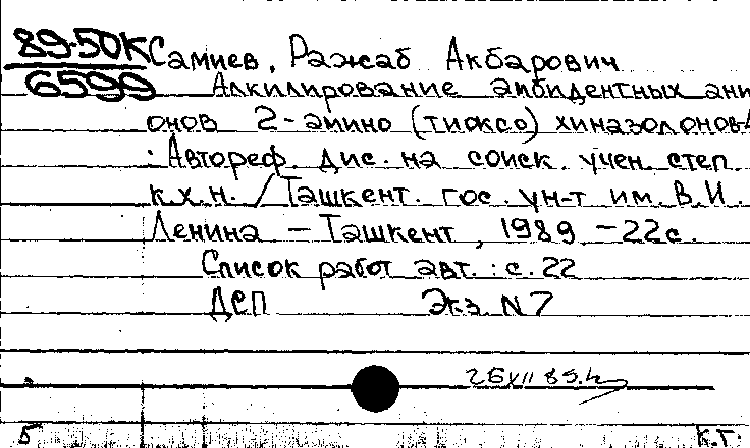 89-50К Самиев, Ражаб Акбарович
6599 Алкилирование амбидентных ани
онов 2-амино (тиоксо) хиназолонов-4
: Автореф. дис. на соиск. учен. степ.
к.х.н. / Ташкент. гос. ун-т им. В.И.
Ленина – Ташкент, 1989 – 22с.
Список работ авт.: с. 22
ДСП Экз. N7
Б К.Г.